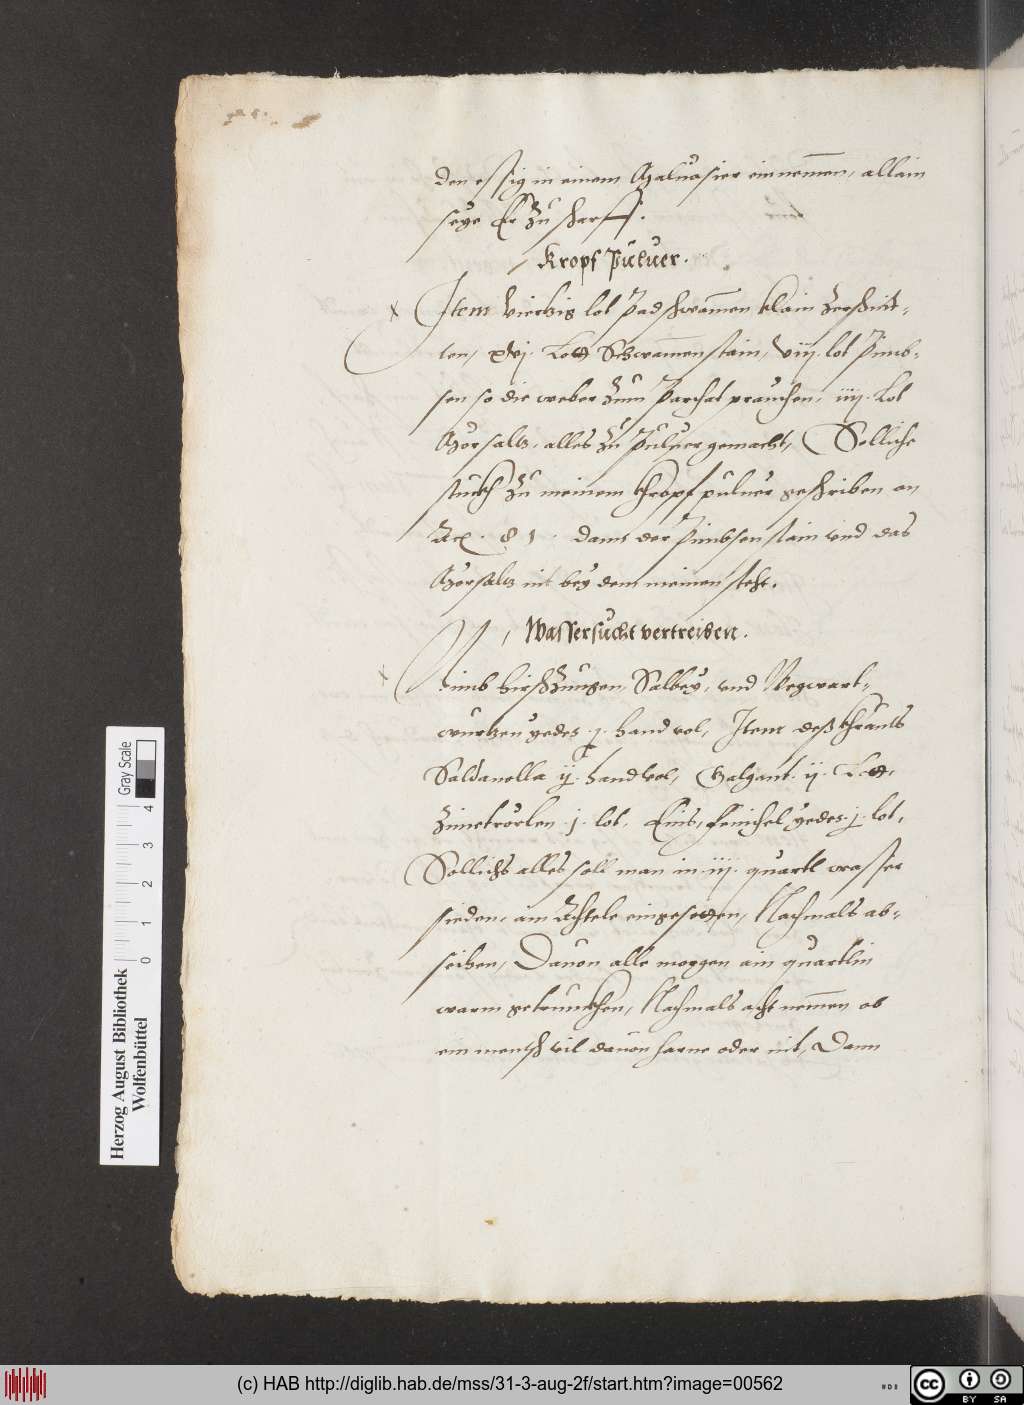 den essig in einem Maluasier ein nemen, allain
seye Er zu scharff.
Kropf Puluer.
Item Viertzig lot Padschwamen klain zerschnit-
ten, xvj. Lott Schwamenstain, viij. lot Pimb-
sen so die weber zum Parchat prauchen, iiij. Lot
Mörsaltz, alles zu Puluer gemacht, Solliche
stuckh zu meinem khropf puluer geschriben an
81. dann der Pimbsenstain vnd das
Mörsaltz nit bey dem meinen steht.
Wassersucht vertreiben.
Nimb hirschzungen, Salbey, vnd Wegwart-
wurtzen yedes .j. hand vol, Item deß khrauts
Saldanella ij. handvol, Galgant. ij. Lott,
zimetrörlen .j. lot, Enis, fenichel yedes .j. lot,
Sollichs alles soll man in .iij. quartl wasser
sieden, ain Achtele eingesotten, Nachmals ab-
seihen, Dauon alle morgen ain quartlin
warm getrunckhen, Nachmals acht nemen ob
ein mensch vil dauon harne oder nit, Dann
Herzog August Bibliothek
Wolfenbüttel
0 1 2 3 4 Gray Scale
(c) HAB http://diglib.hab.de/mss/31-3-aug-2f/start.htm?image=00562
HAB
cc BY SA